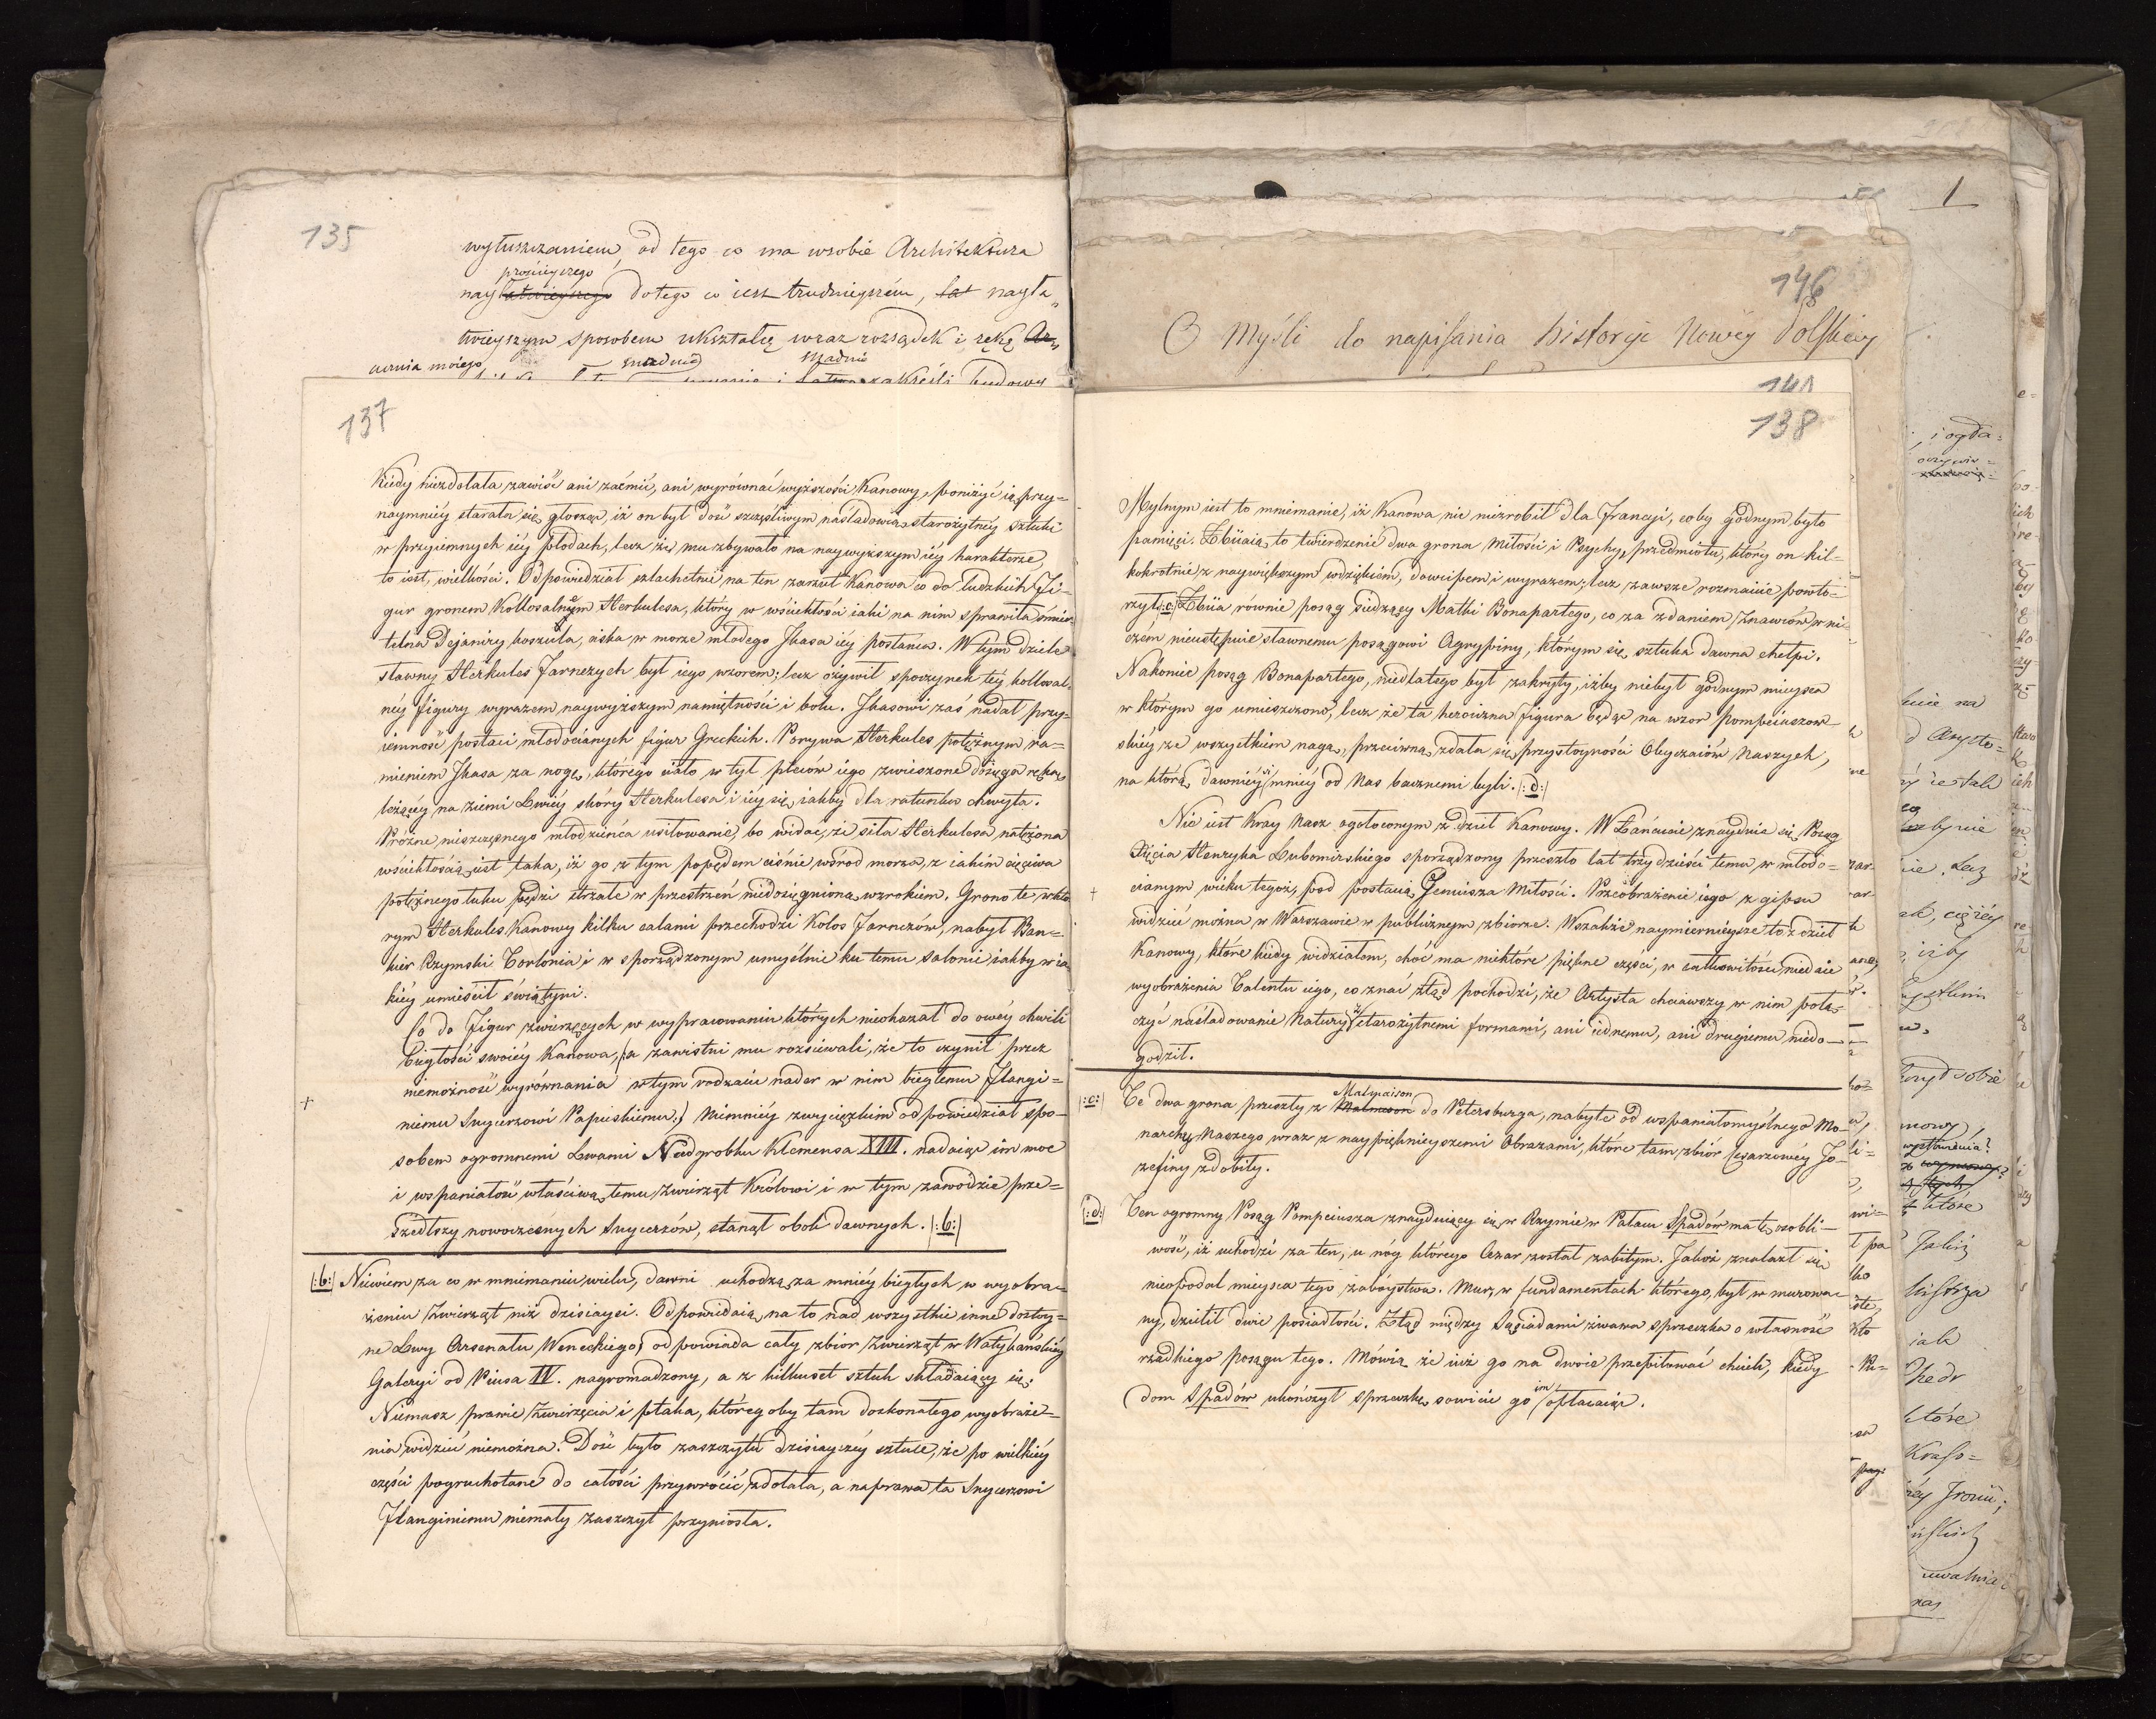 135
wyłuszczaniem, od tego co ma wsobie Architektura
prościejszego
nay łatwieyszego do tego co iest trudnieyszém, łat nayła„
twieyszym sposobem ukształcę wraz rozsądek i rękę
ucznia moiego
137
Kiedy niezdołała zawiść ani zaćmić, ani wyrównać wyższości Kanowy, poniżyć ią przy=
naymniéy starała się, głosząc, iż on był dość szczęśliwym naśladowcą starożytnéy sztuki
w przyiemnych iéy płodach, lecz że mu zbywało na naywyższym iéy harakterze,
to iest, wielkości. Odpowiedział szlachetnie na ten zarzut Kanowa co do ludzkich Fi=
gur gronem Kollosalnym Herkulesa, który w wściekłości iaki na nim sprawiła śmier
telna Dejaniry koszula, ciska w morze młodego Jkasa iéy posłańca. W tym dziele
sławny Herkules Farnezych był iego wzorem; lecz ożywił spoczynek téy kollosal=
néy figury wyrazem naywyższym namiętności i bolu. Jkasowi zaś nadał przy=
iemność postaci młodocianych figur Greckich. Porywa Herkules potężnym ra=
mieniem Jkasa za nogę, którego ciało w tył pleców iego zwieszone dosięga ręką
leżącéy na ziemi Lwiéy skóry Herkulesa i iéy się iakby dla ratunku chwyta.
Próżne nieszczęsnego młodzieńca usiłowanie, bo widać, że siła Herkulesa natężona
wściekłością iest taka, iż go z tym popędem ciśnie wśród morza, z iakim cięciwa
potężnego łuku pędzi strzałę w przestrzeń niedosięgnioną wzrokiem. Grono te w któ
rym Herkules Kanowy kilku calami przechodzi Kolos Farnezów, nabył Ban=
kier Rzymski Torlonia i w sporządzonym umyślnie ku temu salonie iakby w ia
kiéy umieścił świątyni.
Co do Figur zwierzęcych w wypracowaniu których nieokazał do owéy chwili
biegłości swoiéy Kanowa, (a zawistni mu rozsiewali, że to czynił przez
niemożność wyrównania w tym rodzaiu nader w nim biegłemu Flangi=
+
niemu Snycerzowi Papieskiemu,) niemniéy zwycięzkim odpowiedział spo=
sobem ogromnemi Lwami Nadgrobku Klemensa XIII. nadaiąc im moc
i wspaniałość właściwą temu Zwierząt Królowi i w tym zawodzie prze=
szedłszy nowoczesnych Snycerzów, stanął obok dawnych. /:b:/
/:b:/ Niewiem za co w mniemaniu wielu, dawni uchodzą za mniéy biegłych w wyobra=
żeniu Zwierząt niż dzisieysi. Odpowiadaią na to nad wszystkie inne dostoy=
ne Lwy Arsenału Weneckiego; odpowiada cały zbiór Zwierząt w Watykańskiéy
Galeryi od Piusa IV. nagromadzony, a z kilkuset sztuk składaiący się.
Niemasz prawie Zwierzęcia i ptaka, któregoby tam doskonałego wyobraże=
nia widzieć niemożna. Dość było zaszczytu dzisieyszéy sztuce, że po wielkiéy
części pogruchotane do całości przywrócić zdołała, a naprawa ta Snycerzowi
Flanginiemu niemały zaszczyt przyniosła.
1
146
O myśli do napisania historyi Nowéy Polskiéy
141
138
Mylnym iest to mniemanie, iż Kanowa nic niezrobił dla Francyi, coby godnym było
pamięci. Zbiiaią to twierdzenie dwa grona Miłości i Psychy, przedmiotu, który on kil=
kokrotnie z naywiększym wdziękiem, dowcipem i wyrazem, lecz zawsze rozmaicie powtó=
rzył /:c:/ Zbiia równie posąg siedzący Matki Bonapartego, co za zdaniem Znawców w ni=
czém nieustępuie sławnemu posągowi Agryppiny, którym się sztuka dawna chełpi.
Nakoniec posąg Bonapartego, niedlatego był zakryty, iżby niebył godnym mieysca
w którym go umieszczono, lecz że ta heroiczna figura będąc na wzór pompeiuszow=
skiéy ze wszystkiem nagą, przeciwną zdała się przystoyności Obyczaiów Naszych,
na którą dawnieysi mniéy od Nas bacznemi byli. /:d:/
Nie iest Kray Nasz ogołoconym z dzieł Kanowy. W Łańcucie znayduie się Posąg
Xięcia Henryka Lubomirskiego sporządzony przeszło lat trzydzieści temu w młodo=
+
cianym wieku tegoż, pod postacią Geniusza Miłości. Przeobrażenie iego z gipsu
widzieć można w Warszawie w publicznym zbiorze. Wszakże naymiernieysze to z dzieł
Kanowy, które kiedy widziałem, choć ma niektóre piękne części, w całkowitości nie daie
wyobrażenia Talentu iego, co znać ztąd pochodzi, że Artysta chciawszy w nim połą=
czyć naśladowanie Natury z starożytnemi formami, ani iednemu, ani drugiemu niedo=
godził.
/:c:/ Te dwa grona przeszły z Malmaison do Petersburga, nabyte od wspaniałomyślnego Mo=
narchy Naszego wraz z naypięknieyszemi Obrazami, które tam zbiór Cesarzowéy Jó=
zefiny zdobiły.
/:d:/ Ten ogromny Posąg Pompeiusza znayduiący się w Rzymie w Pałacu Spadów ma tę osobli=
wość, iż uchodzi za ten, u nóg którego Cezar został zabitym. Jakoż znalazł się
nieopodal mieysca tego zabóystwa. Mur, w fundamentach którego był w murowa=
ny, dzielił dwie posiadłości. Ztąd między Sąsiadami żwawa sprzeczka o własność
rzadkiego posągu tego. Mówią że iuż go na dwoie przepiłować chcieli, kiedy
dom Spadów ukończył sprzeczkę sowicie go im opłacaiąc.